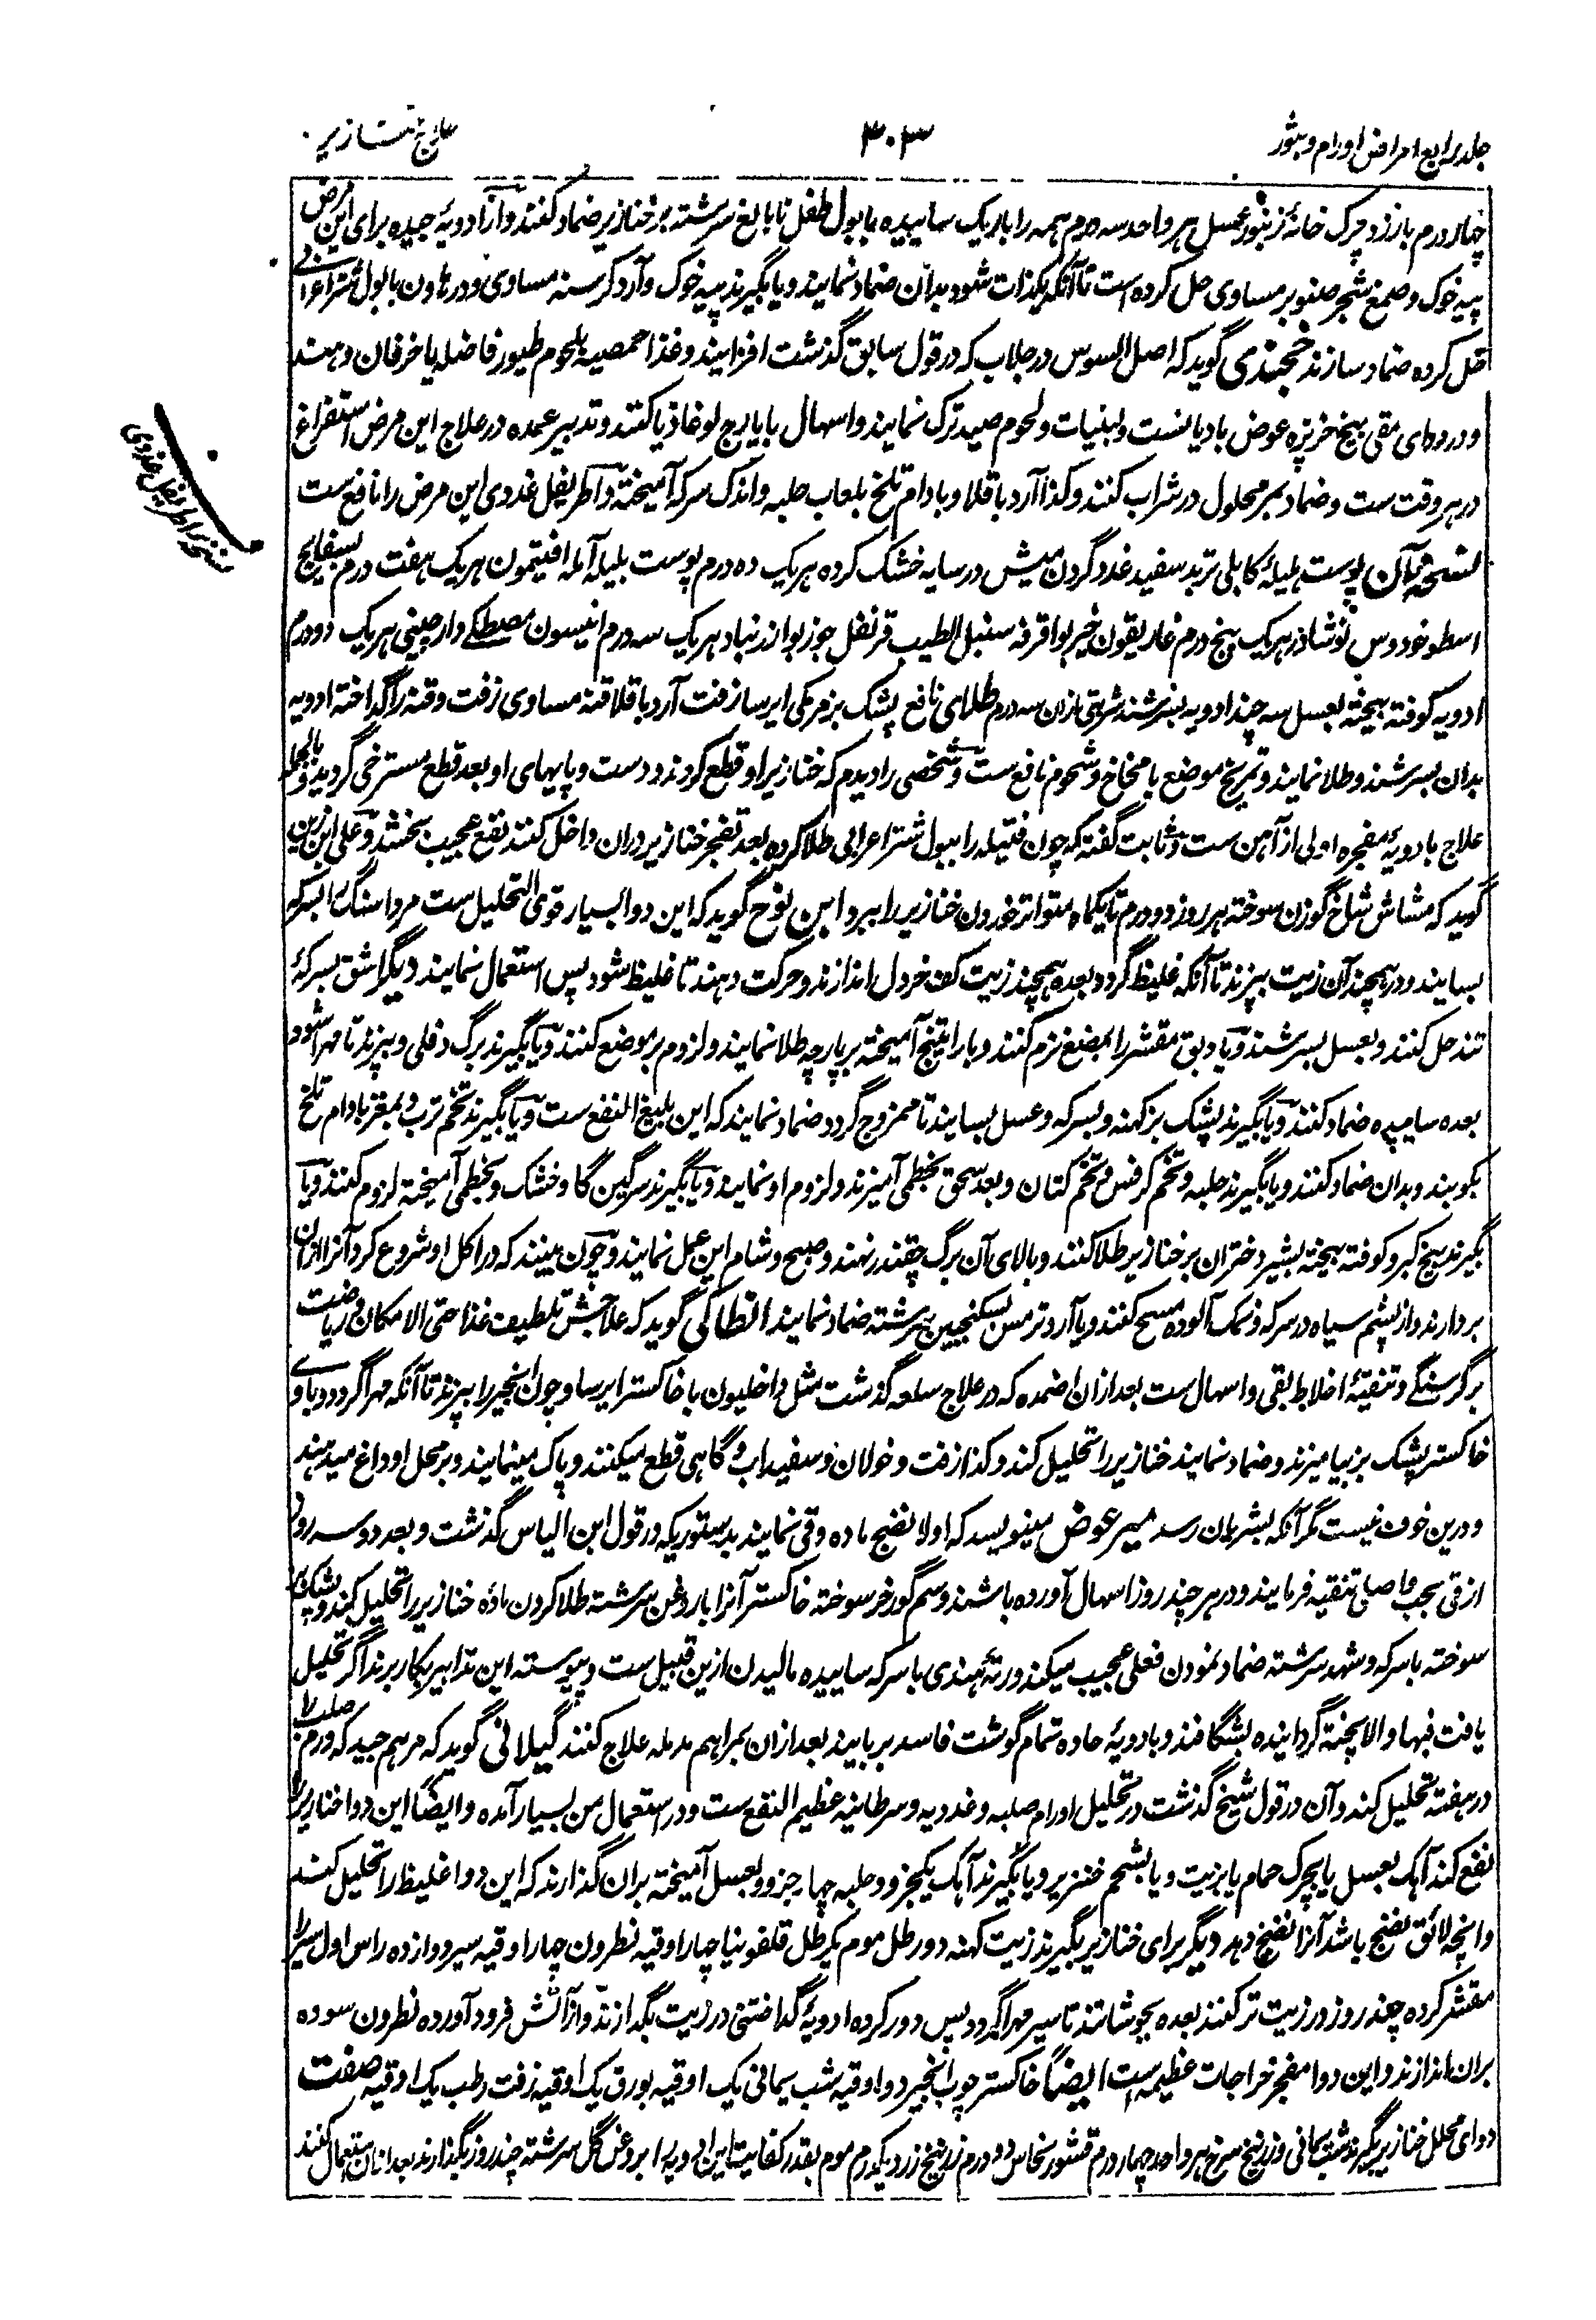 جلد رابع امراض اورام و بثور
۳۰۳
علاج خنازیر
چهار درم بازرد چرک خانهٔ زنبور عسل هر واحد سه درم همه را باریک ساییده با بول طفل نابالغ سرشته بر خنازیر ضماد کنند و از ادویهٔ جیده برای این مرض
پیه خوک و صمغ شجر صنوبر مساوی حل کرده است تا آنکه یکذات شود بدان ضماد نمایند و یا بگیرند پیه خوک و آرد کرسنه مساوی و در هاون با بول شتر اعرابی
حل کرده ضماد سازند خجندی گوید که اصل السوس در جلاب که در قول سابق گذشت افزایند و غذا حمصیه بلحوم طیور فاضله یا خرفان دهند
و در دوای مقی بیخ خرپزه عوض بادیانست و لبنیات و لحوم صید ترک نمایند و اسهال بایارج لوغاذیا کنند و تدبیر عمده در علاج این مرض استفراغ
در هر وقت ست و ضماد بر محلول در شراب کنند و کذا آرد باقلا و بادام تلخ بلعاب حلبه و اندک سرکه آمیخته و اطریفل غددی این مرض را نافع ست
نسخه آن پوست هلیلهٔ کابلی تربد سفید غدد گردن میش در سایه خشک کرده هر یک ده درم پوست بلیله آمله افتیمون هر یک هفت درم بسفایج
اسطوخودوس نوشادر هر یک پنج درم غاریقون خیربوا قرفه سنبل الطیب قرنفل جوزبوا زرنباد هر یک سه درم انیسون مصطکی دارچینی هر یک دو درم
ادویه کوفته بیخته بعسل سه چند ادویه بسرشند شربتی ازان سه درم طلای نافع پشک بز مرمکی ایرسا زفت آرد باقلا قنه مساوی زفت و قنه را گداخته ادویه
بدان بسرشند و طلا نمایند و تمریخ موضع با مخاخ و شحوم نافع ست و شخصی را دیدم که خنازیر او قطع کردند و دست و پایهای او بعد قطع مسترخی گردید و بالجمله
علاج بادویهٔ مفجره اولی از آهن ست و ثابت گفته که چون فتیله را ببول شتر اعرابی طلا کرده بعد تفجر خنازیر دران داخل کنند نفع عجیب بخشد و علی ابن زین
گوید که مشاش شاخ گوزن سوخته هر روز دو درم تا یکماه متواتر خوردن خنازیر را ببرد ابن نوح گوید که این دوا بسیار قوی التحلیل ست مرداسنگ بسرکه
بسایند و در همچند آن زیت بپزند تا آنکه غلیظ گردد بعده همچند زیت کف خردل اندازند و حرکت دهند تا غلیظ شود پس استعمال نمایند دیگر اشق بسرکهٔ
تند حل کنند و بعسل بسرشند و یا دبق مقشر را بمضغ نرم کنند و با راتینج آمیخته بر پارچه طلا نمایند و لزوم بر موضع کنند و یا بگیرند برگ دفلی و بپزند تا مهرا شود
بعده ساییده ضماد کنند و یا بگیرند پشک بز کهنه و بسرکه و عسل بسایند تا ممزوج گردد ضماد نمایند که این بلیغ النفع ست و یا بگیرند تخم ترب و بمغز بادام تلخ
بکوبند و بدان ضماد کنند و یا بگیرند حلبه و تخم کرفس و تخم کتان و بعد سحق بخطمی آمیزند و لزوم او نمایند و یا بگیرند سرگین گاو خشک و بخطمی آمیخته لزوم کنند و یا
بگیرند بیخ کبر و کوفته بیخته بشیر دختران بر خنازیر طلا کنند و بالای آن برگ چقندر نهند و صبح و شام این عمل نمایند و چون بینند که در اکل او شروع کرد آنرا ازان
بردارند و از پشم سیاه در سرکه و نمک آلوده مسح کنند و یا آرد ترمس بسکنجبین سرشته ضماد نمایند انطاکی گوید که علاجش تلطیف غذا حتی الامکان ریاضت
بر گرسنگی و تنقیهٔ اخلاط بقی و اسهال ست بعد ازان اضمده که در علاج سلعه گذشت مثل داخلیون با خاکستر ایرسا و چون انجیر را بپزند تا آنکه مهرا گردد و با وی
خاکستر پشک بز بیامیزند و ضماد نمایند خنازیر را تحلیل کند و کذا زفت و خولان و سفیداب و گاهی قطع میکنند و پاک مینمایند و بر محل او داغ میدهند
و درین خوف نیست مگر آنکه بشریان رسد میر عوض مینویسد که اولا نضج ماده و قی نمایند بدستوریکه در قول ابن الیاس گذشت و بعد دو سه روز
از قی بحب واصلی تنقیه فرمایند و در هر چند روز اسهال آورده باشند و سم گورخر سوخته خاکستر آنرا با روغن سرشته طلا کردن ماده خنازیر را تحلیل کند و پشک بز
سوخته با سرکه و شهد سرشته ضماد نمودن فعلی عجیب میکند و رتهٔ هندی با سرکه ساییده مالیدن ازین قبیل ست و پیوسته این تدابیر بکار برند اگر تحلیل
یافت فبها و الا پخته گردانیده بشگافند و بادویهٔ حاده تمام گوشت فاسد بربایند بعد ازان بمراهم مدمله علاج کنند گیلانی گوید که مرهم جید که ورم صلب را
در هفته تحلیل کند و آن در قول شیخ گذشت در تحلیل اورام صلبه و غددیه و سرطانیه عظیم النفع ست و در استعمال من بسیار آمده و ایضاً این دوا خنازیر را
نفع کند آهک بعسل یا بچرک حمام یا بزیت و یا بشحم خنزیر و یا بگیرند آهک یکجزو و حلبه چهار جزو و بعسل آمیخته بران گذارند که این دوا غلیظ را تحلیل کند
و انچه لائق نضج باشد آنرا نضج دهد دیگر برای خنازیر بگیرند زیت کهنه دو رطل موم یکرطل قلفونیا چهار اوقیه نطرون چهار اوقیه سیر دوازده راس اول سیر را
مقشر کرده چند روز در زیت تر کنند بعده بجوشانند تا سیر مهرا گردد پس دور کرده ادویهٔ گداختنی در زیت بگدازند و از آتش فرود آورده نطرون سوده
بران اندازند و این دوا مفجر خراجات عظیمه است ایضاً خاکستر چوب انجیر دو اوقیه شب یمانی یک اوقیه بورق یک اوقیه زفت رطب یک اوقیه صفت
دوای محلل خنازیر بگیرند شب یمانی و زرنیخ سرخ هر واحد چهار درم قشور نحاس دو درم زرنیخ زرد یکدرم موم بقدر کفایت این ادویه را بروغن گل سرشته چند روز بگذارند بعد ازان استعمال کنند
نسخه اطریفل غددی